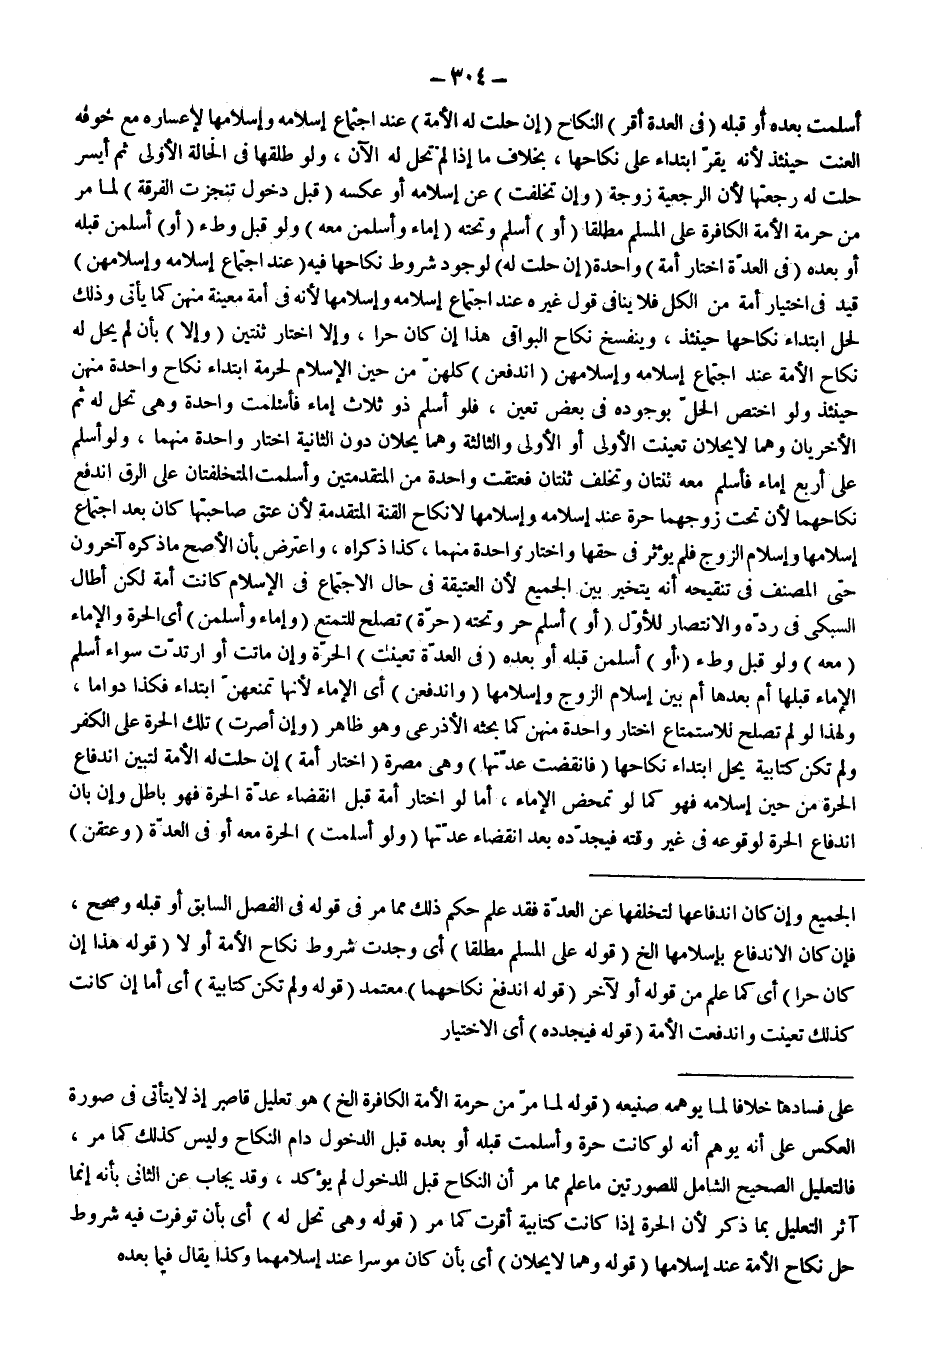 – ٣٠٤ –
أسلمت بعده أو قبله ( فى العدة أقر ) النكاح ( إن حلت له الأمة ) عند اجتماع إسلامه وإسلامها لإعساره مع خوفه
العنت حينئذ لأنه يقرّ ابتداء على نكاحها ، بخلاف ما إذا لم تحل له الآن ، ولو طلقها فى الحالة الأولى ثم أيسر
حلت له رجعتها لأن الرجعية زوجة ( وإن تخلفت ) عن إسلامه أو عكسه ( قبل دخول تنجزت الفرقة ) لما مر
من حرمة الأمة الكافرة على المسلم مطلقا ( أو ) أسلم وتحته ( إماء وأسلمن معه ) ولو قبل وطء ( أو ) أسلمن قبله
أو بعده ( فى العدّة اختار أمة ) واحدة ( إن حلت له ) لوجود شروط نكاحها فيه ( عند اجتماع إسلامه وإسلامهن )
قيد فى اختيار أمة من الكل فلا ينافى قول غيره عند اجتماع إسلامه وإسلامها لأنه فى أمة معينة منهن كما يأتى وذلك
لحل ابتداء نكاحها حينئذ ، وينفسخ نكاح البواقى هذا إن كان حرا ، وإلا اختار ثنتين ( وإلا ) بأن لم يحل له
نكاح الأمة عند اجتماع إسلامه وإسلامهن ( اندفعن ) كلهنّ من حين الإسلام لحرمة ابتداء نكاح واحدة منهن
حينئذ ولو اختص الحلّ بوجوده فى بعض تعين ، فلو أسلم ذو ثلاث إماء فأسلمت واحدة وهى تحل له ثم
الأخريان وهما لايحلان تعينت الأولى أو الأولى والثالثة وهما يحلان دون الثانية اختار واحدة منهما ، ولو أسلم
على أربع إماء فأسلم معه ثنتان وتخلف ثنتان فعتقت واحدة من المتقدمتين وأسلمت المتخلفتان على الرق اندفع
نكاحهما لأن تحت زوجهما حرة عند إسلامه وإسلامها لانكاح القنة المتقدمة لأن عتق صاحبتها كان بعد اجتماع
إسلامها وإسلام الزوج فلم يؤثر فى حقها واختار واحدة منهما ، كذا ذكراه ، واعترض بأن الأصح ماذكره آخرون
حتى المصنف فى تنقيحه أنه يتخير بين الجميع لأن العتيقة فى حال الاجتماع فى الإسلام كانت أمة لكن أطال
السبكى فى ردّه والانتصار للأوّل ( أو ) أسلم حر وتحته ( حرّة ) تصلح للتمتع ( وإماء وأسلمن ) أى الحرة والإماء
( معه ) ولو قبل وطء ( أو ) أسلمن قبله أو بعده ( فى العدّة تعينت ) الحرّة وإن ماتت أو ارتدّت سواء أسلم
الإماء قبلها أم بعدها أم بين إسلام الزوج وإسلامها ( واندفعن ) أى الإماء لأنها تمنعهنّ ابتداء فكذا دواما ،
ولهذا لو لم تصلح للاستمتاع اختار واحدة منهن كما بحثه الأذرعى وهو ظاهر ( وإن أصرت ) تلك الحرة على الكفر
ولم تكن كتابية يحل ابتداء نكاحها ( فانقضت عدّتها ) وهى مصرة ( اختار أمة ) إن حلت له الأمة لتبين اندفاع
الحرة من حين إسلامه فهو كما لو تمحض الإماء ، أما لو اختار أمة قبل انقضاء عدّة الحرة فهو باطل وإن بان
اندفاع الحرة لوقوعه فى غير وقته فيجدّده بعد انقضاء عدّتها ( ولو أسلمت ) الحرة معه أو فى العدّة ( وعتقن )
الجميع وإن كان اندفاعها لتخلفها عن العدّة فقد علم حكم ذلك مما مر فى قوله فى الفصل السابق أو قبله وصحح ،
فإن كان الاندفاع بإسلامها الخ ( قوله على المسلم مطلقا ) أى وجدت شروط نكاح الأمة أو لا ( قوله هذا إن
كان حرا ) أى كما علم من قوله أو لآخر ( قوله اندفع نكاحهما ) معتمد ( قوله ولم تكن كتابية ) أى أما إن كانت
كذلك تعينت واندفعت الأمة ( قوله فيجدده ) أى الاختيار
على فسادها خلافا لما يوهمه صنيعه ( قوله لما مرّ من حرمة الأمة الكافرة الخ ) هو تعليل قاصر إذ لايتأتى فى صورة
العكس على أنه يوهم أنه لو كانت حرة وأسلمت قبله أو بعده قبل الدخول دام النكاح وليس كذلك كما مر ،
فالتعليل الصحيح الشامل للصورتين ماعلم مما مر أن النكاح قبل الدخول لم يؤكد ، وقد يجاب عن الثانى بأنه إنما
آثر التعليل بما ذكر لأن الحرة إذا كانت كتابية أقرت كما مر ( قوله وهى تحل له ) أى بأن توفرت فيه شروط
حل نكاح الأمة عند إسلامها ( قوله وهما لايحلان ) أى بأن كان موسرا عند إسلامهما وكذا يقال فيما بعده